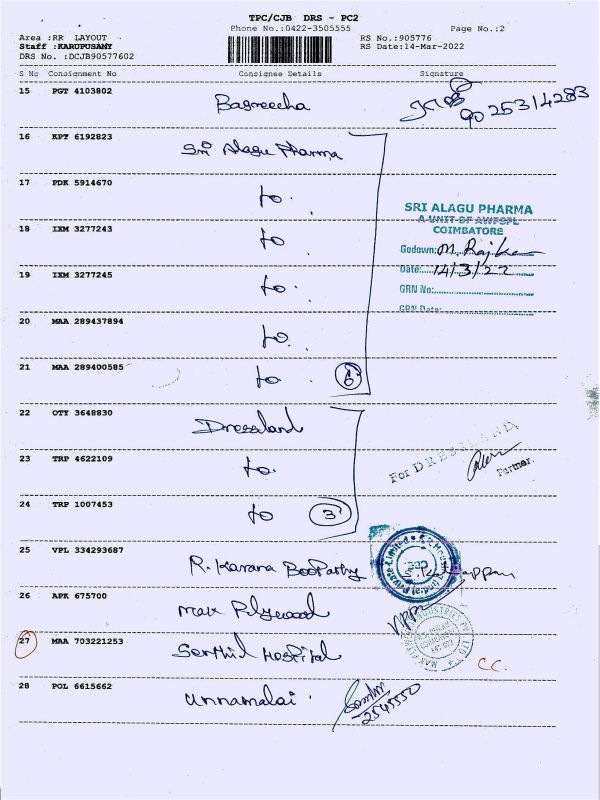 TPC/CJB DRS - PC2
Phone No.:0422-3505555
Page No.:2
Area :RR LAYOUT
Staff :KARUPUSAMY
DRS No. :DCJB90577602
RS No.:905776
RS Date:14-Mar-2022
S No Consignment No Consignee Details Signature
15 PGT 4103802 Bagreecha 9025314283
16 KPT 6192823 Sri Alagu Pharma
17 PDK 5914670 to.
SRI ALAGU PHARMA
A UNIT OF AWPSPL
COIMBATORE
18 IXM 3277243 to
Godown: M. Rajke
Date: 14/3/22
19 IXM 3277245 to.
GRN No:
GRN Date:
20 MAA 289437894 to.
21 MAA 289400585 to 6
22 OTY 3648830 Dressland
23 TRP 4622109 to.
For DRESSLAND
Partner.
24 TRP 1007453 to 3
25 VPL 334293687 R. Karana Boopathy
26 APK 675700 Max Plywood
27 MAA 703221253 Senthil Hospital CC.
28 POL 6615662 Unnamalai. 2545550